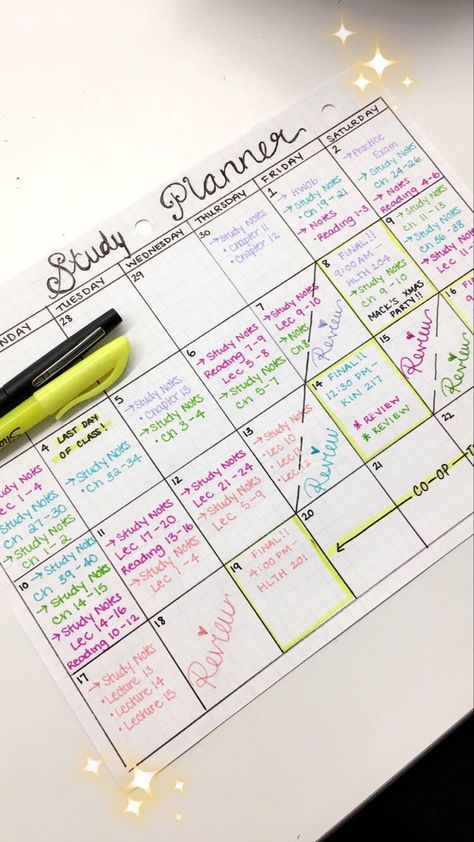 Study Planner
NDAY
TUESDAY
WEDNESDAY
THURSDAY
FRIDAY
SATURDAY
28
29
30
→Study Notes
• Chapter 11
• Chapter 12
1
→HW06
→Study Notes
Ch 19-21
→Notes
Reading 1-3
2
→Practice
Exam
→Study Notes
Ch 24-26
→Notes
Reading 4-6
Study Notes
Lec 1-4
→Study Notes
Ch 27-30
→Study Notes
Ch 1-2
4
LAST DAY
OF CLASS!
→Study Notes
Ch 32-34
5
→Study Notes
• Chapter 13
→Study Notes
Ch 3-4
6
→Study Notes
Reading 7-9
Lec 5-8
→Study Notes
Ch 5-7
7
→Study Notes
Lec 9-10
→Study Notes
Ch 8
Review
8
FINAL!!
9:00 AM -
HLTH 204
→Study Notes
Ch 9-10
MACK'S XMAS
PARTY!!
9
→Study Notes
Ch 11-13
→Study Notes
→Study Notes
10
→Study Notes
Ch 39-40
→Study Notes
Ch 14-15
→Study Notes
Lec 14-16
Reading 10-12
11
→Study Notes
Lec 17-20
Reading 13-16
→Study Notes
Lec 1-4
12
→Study Notes
Lec 21-24
→Study Notes
Lec 5-9
13
→Study Notes
Lec 10
Review
14
FINAL!!
12:30 PM -
KIN 217
* REVIEW
* REVIEW
15
Review
Review
16
17
→Study Notes
• Lecture 13
• Lecture 14
• Lecture 15
18
Review
19
FINAL!!
4:00 PM -
HLTH 201
20
21
22
CO-OP